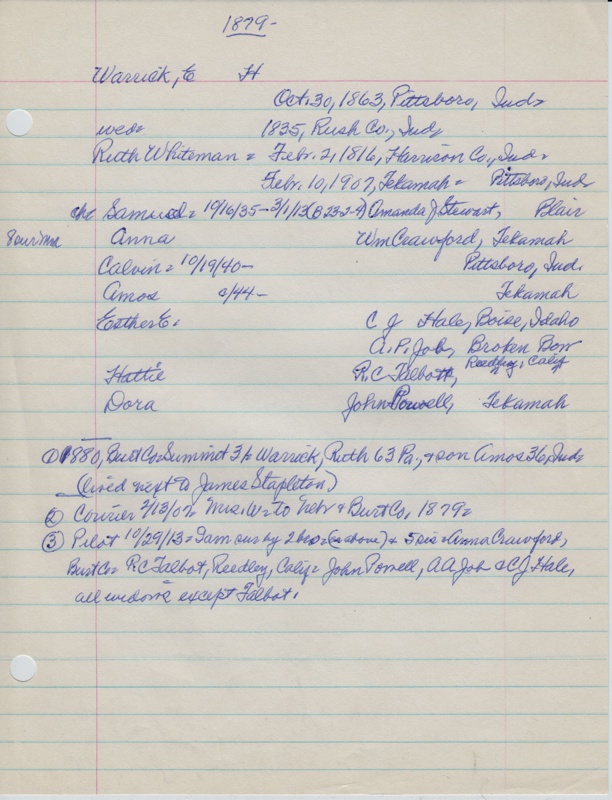 1879-
Warrick, C H
Oct. 30, 1863, Pittsboro, Ind.
wed= 1835, Rush Co., Ind.
Ruth Whiteman = Febr. 2, 1816, Harrison Co., Ind.
Febr. 10, 1907, Tekamah = Pittsboro, Ind.
ch: Samuel = 10/16/35 - 3/1/13 (B 23-2-4) Amanda J Stewart, Blair
Anna Wm Crawford, Tekamah
Calvin = 10/19/40 - Pittsboro, Ind.
Amos c/44 - Tekamah
Esther E. C J Hale, Boise, Idaho
A. P. Job, Broken Bow
Hattie R. C Talbott, Reedley, Calif
Dora John Powell, Tekamah
① 1880, Burt Co = Summit 3 H Warrick, Ruth 63 Pa., & son Amos 36, Ind.
(lived next to James Stapleton)
② Courier 2/13/07 = Mrs. W = to Nebr & Burt Co. 1879 =
③ Pilot 10/29/13 = Sam sur by 2 bro = (= above) & 5 sis = Anna Crawford,
Burt Co = R. C Talbot, Reedley, Calif = John Powell, A A Job & C J Hale,
all widows except Talbot.